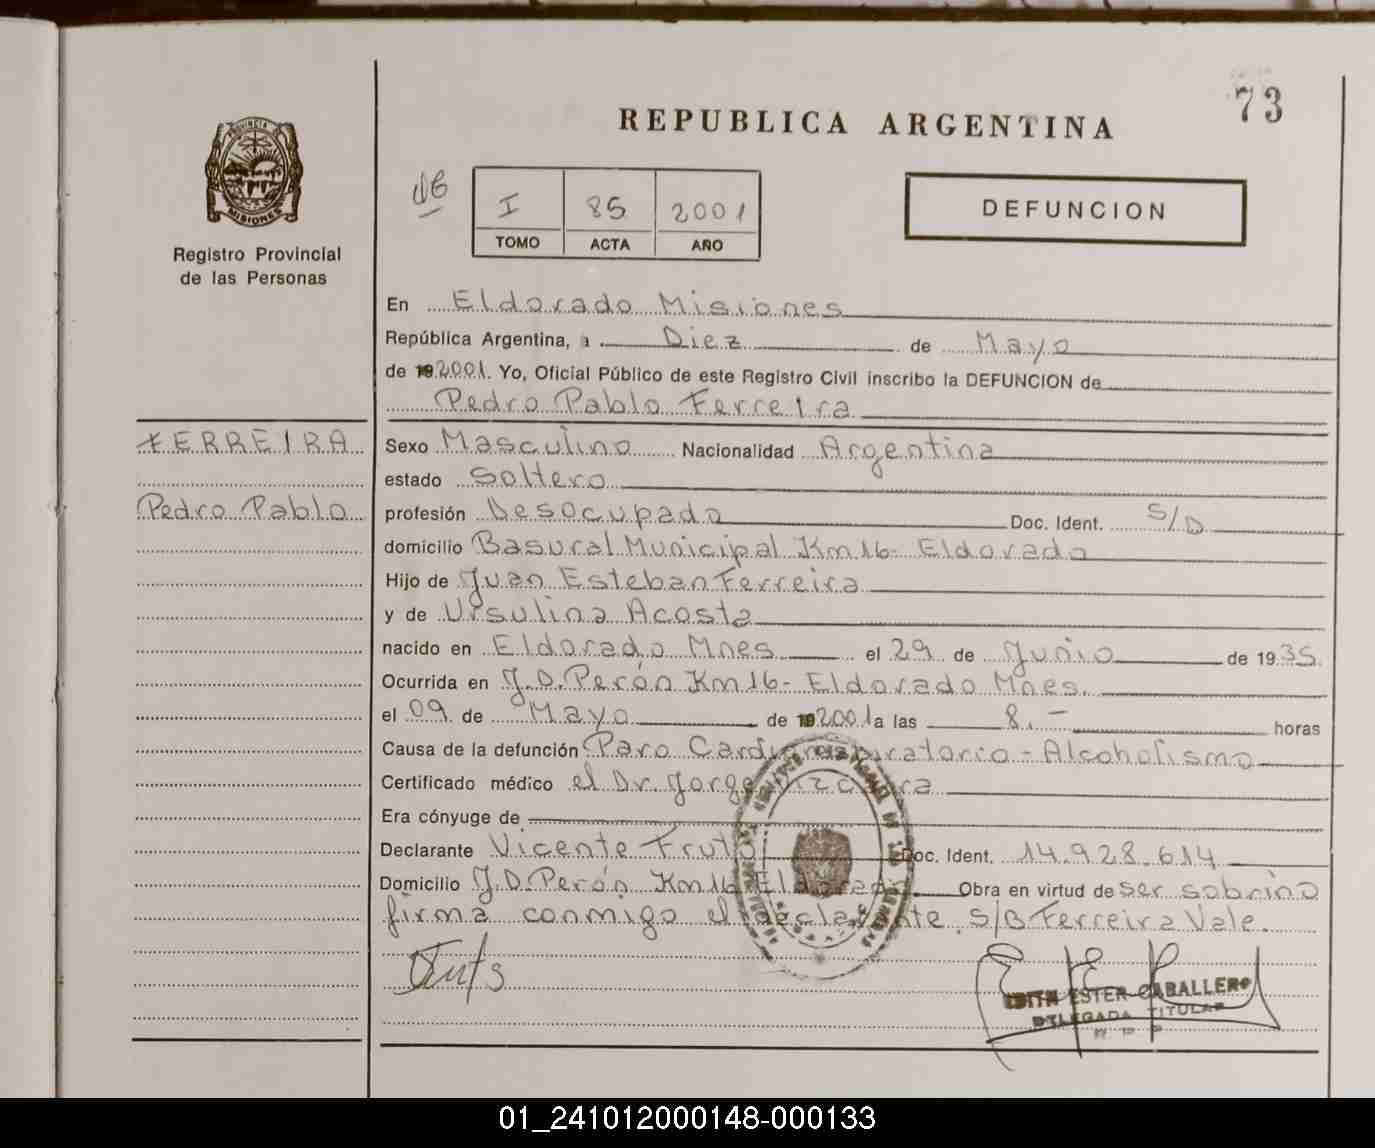 73
REPUBLICA ARGENTINA
PROVINCIA
MISIONES
Registro Provincial
de las Personas
I 85 2001
TOMO ACTA AÑO
DEFUNCION
En Eldorado Misiones
República Argentina, a Diez de Mayo
de 192001. Yo, Oficial Público de este Registro Civil inscribo la DEFUNCION de
Pedro Pablo Ferreira
FERREIRA
Pedro Pablo
Sexo Masculino Nacionalidad Argentina
estado Soltero
profesión Desocupado Doc. Ident. S/D
domicilio Basural Municipal Km 16- Eldorado
Hijo de Juan Esteban Ferreira
y de Ursulina Acosta
nacido en Eldorado Mnes el 29 de Junio de 1935
Ocurrida en J.D. Perón Km 16- Eldorado Mnes.
el 09 de Mayo de 192001 a las 8.- horas
Causa de la defunción Paro Cardiorespiratorio - Alcoholismo
Certificado médico el Dr. Jorge
Era cónyuge de
Declarante Vicente Fruto Doc. Ident. 14.928.614
Domicilio J.D. Perón Km 16 Eldorado Obra en virtud de ser sobrino
firma conmigo el declarante. S/B Ferreira Vale.
EDITH ESTER CABALLERO
DELEGADA TITULAR
01_241012000148-000133